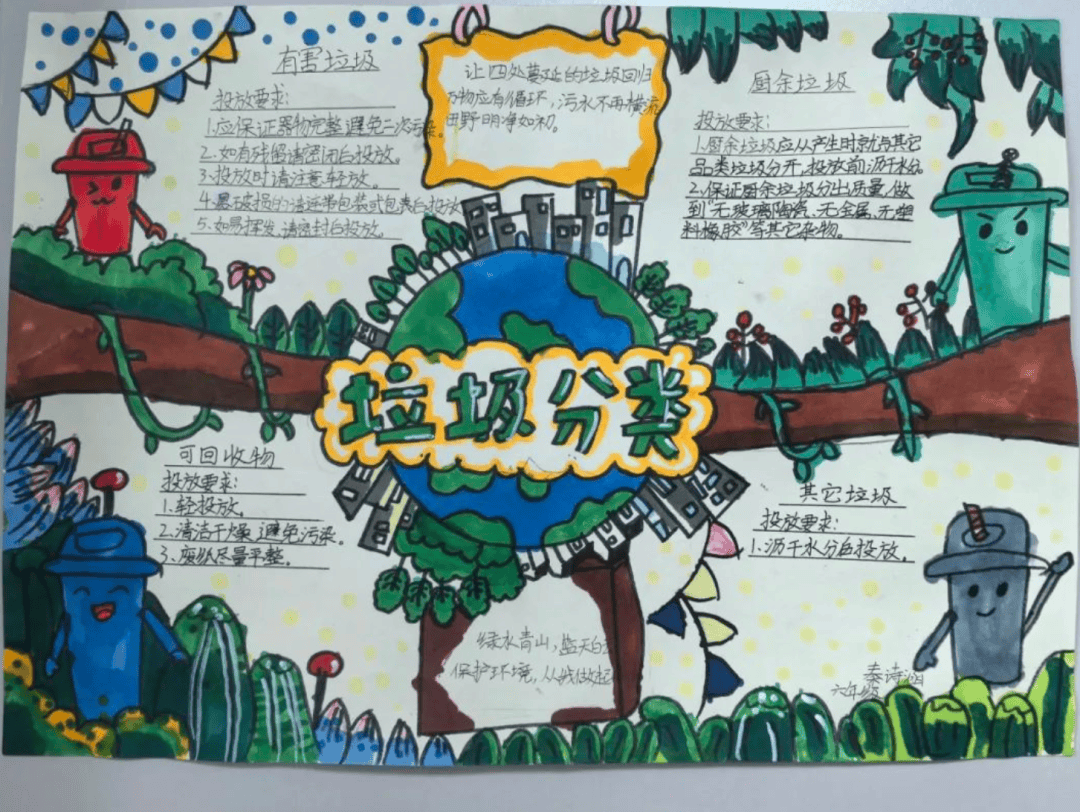 有害垃圾
投放要求:
1.应保证器物完整避免二次污染。
2.如有残留请密闭后投放。
3.投放时请注意轻放。
4.易破损的请连带包装或包裹后投放
5.如易挥发,请密封后投放。
让四处蔓延的垃圾回归
万物应有循环,污水不再横流
田野明净如初。
厨余垃圾
投放要求:
1.厨余垃圾应从产生时就与其它
品类垃圾分开,投放前沥干水分。
2.保证厨余垃圾分出质量,做
到“无玻璃陶瓷、无金属、无塑
料橡胶”等其它杂物。
垃圾分类
可回收物
投放要求:
1.轻投放。
2.清洁干燥,避免污染。
3.废纸尽量平整。
其它垃圾
投放要求:
1.沥干水分后投放。
绿水青山,蓝天白
保护环境,从我做起
秦诗涵
六年级